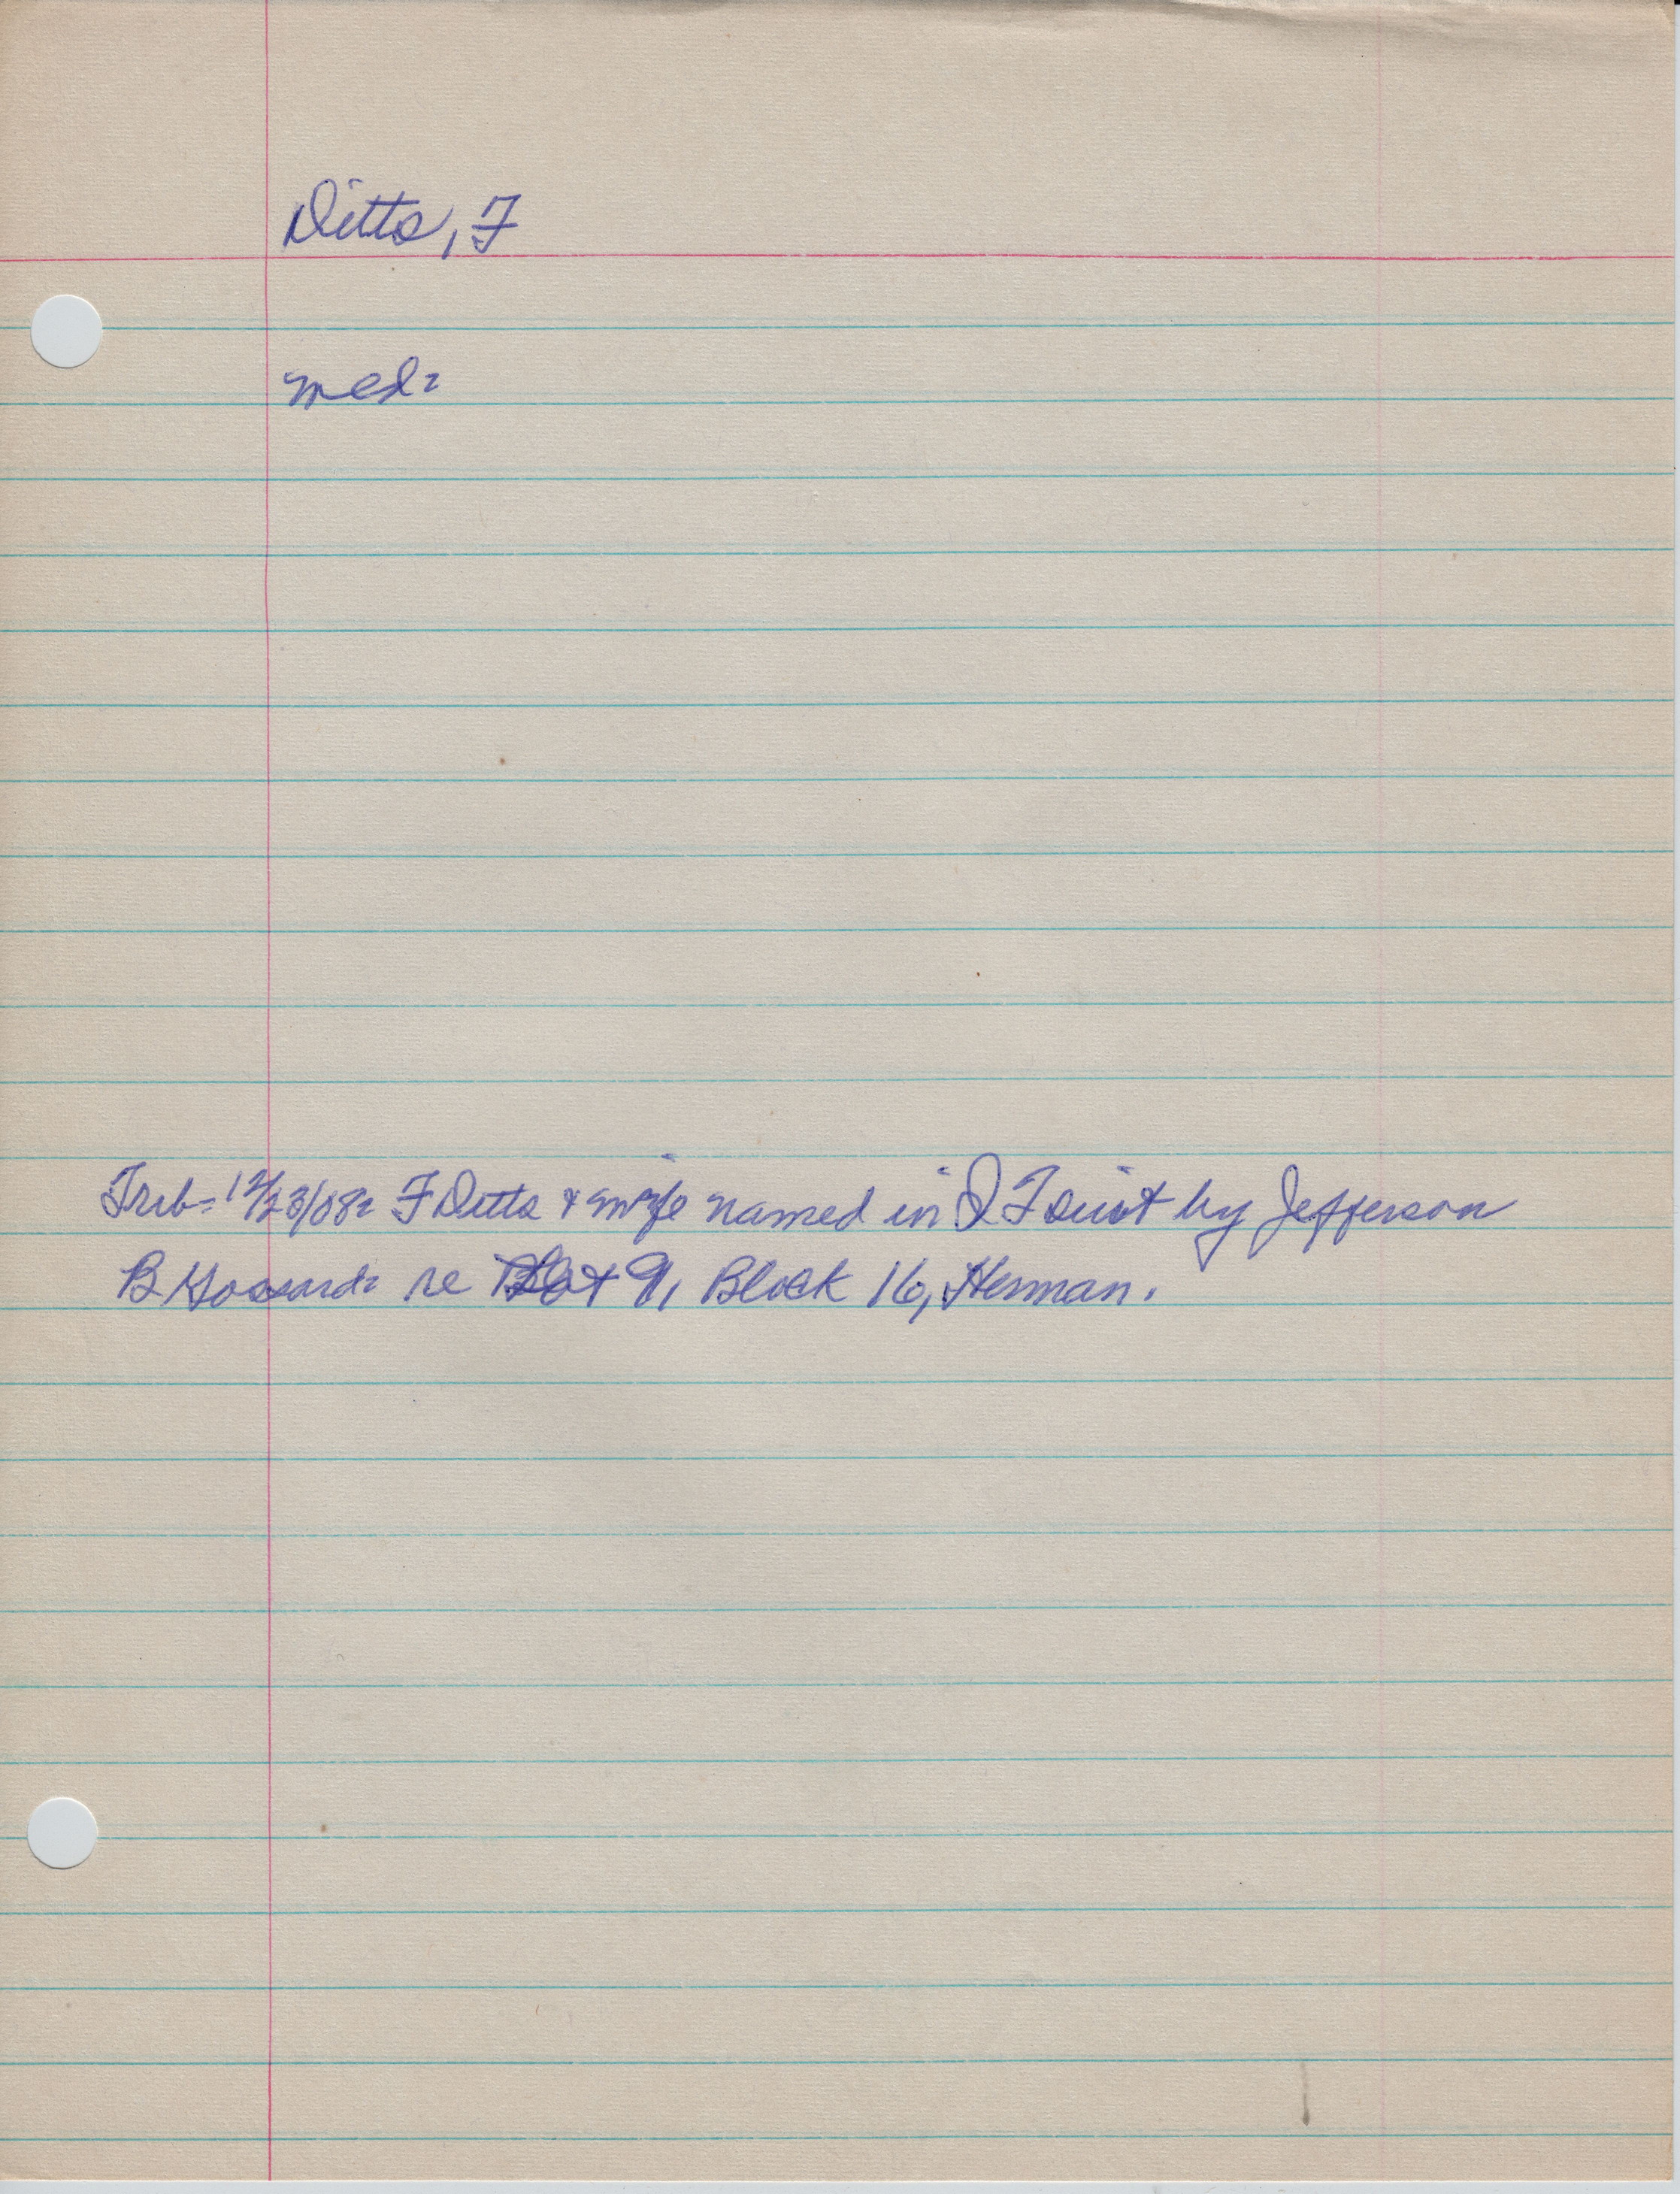 Ditto, F
med=
Trib= 12/23/08= F Ditto & wife named in Q T suit by Jefferson
B Gossard= re Lot 9, Block 16, Herman.